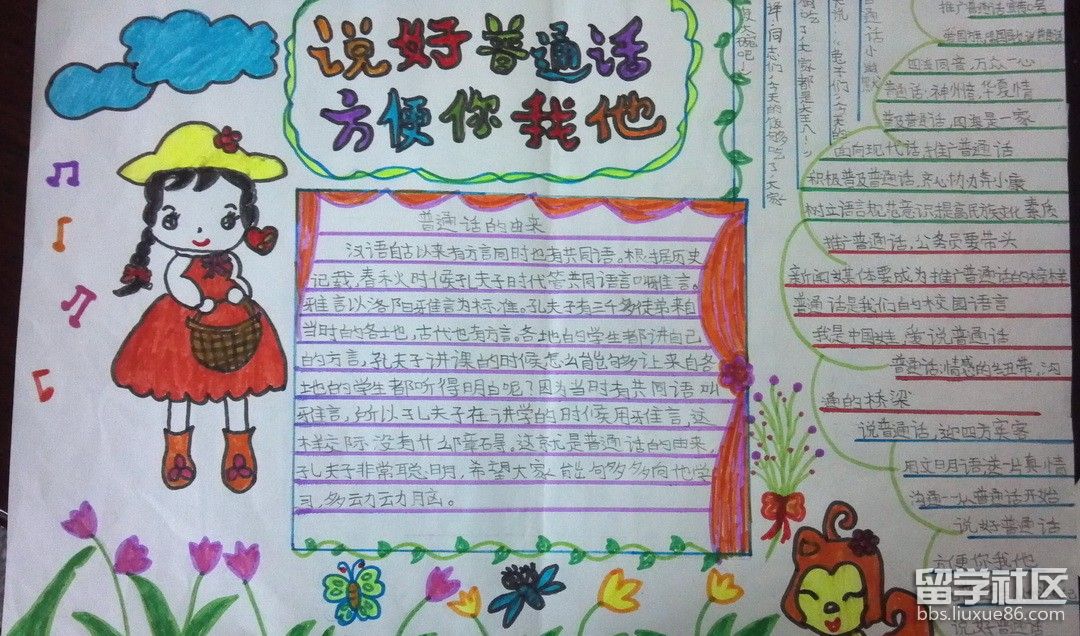 说好普通话
方便你我他
普通话的由来
汉语自古以来有方言同时也有共同语。根据历史
记载,春秋时候孔夫子时代管共同语言叫雅言。
雅言以洛阳雅言为标准。孔夫子有三千多徒弟来自
当时的各地,古代也有方言。各地的学生都讲自己
的方言,孔夫子讲课的时候怎么能够让来自各
地的学生都听得明白呢?因为当时有共同语叫
雅言,所以孔夫子在讲学的时候用雅言,这
样交际没有什么障碍。这就是普通话的由来,
孔夫子非常聪明,希望大家能够多多向他学
习,多动动脑。
普通话小幽默
四海同音,万众一心
普通话:神州音,华夏情
普及普通话,四海是一家
面向现代话,推广普通话
积极普及普通话,齐心协力奔小康
树立语言规范意识,提高民族文化素质
推广普通话,公务员要带头
新闻媒体要成为推广普通话的榜样
普通话是我们的校园语言
我是中国娃,爱说普通话
普通话:情感的纽带,沟
通的桥梁
说普通话,迎四方宾客
用文明语送一片真情
沟通——从普通话开始
说好普通话
方便你我他
留学社区
bbs.liuxue86.com